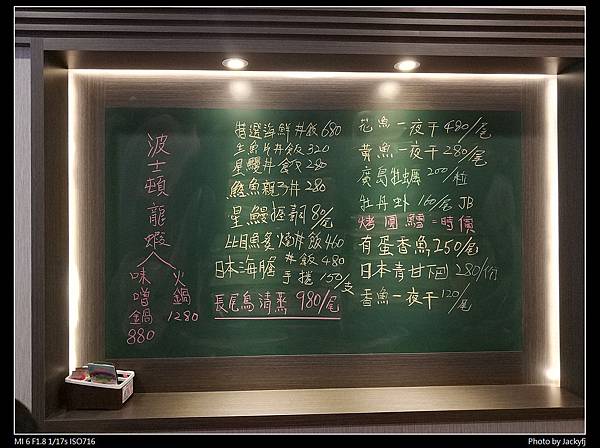 波士頓龍蝦
味噌鍋 880
火鍋 1280
特選海鮮丼飯 680
生魚片丼飯 320
星鰻丼飯 280
鮭魚親子丼 280
星鰻握壽司 80/尾
比目魚炙燒丼飯 460
日本海膽 丼飯 480
手捲 150/支
長尾鳥清蒸 980/尾
花魚一夜干 480/尾
黃魚一夜干 280/尾
廣島牡蠣 200/粒
牡丹蝦 160/尾 JB
烤圓鱈=時價
有蛋香魚 250/尾
日本青甘下巴 280/份
香魚一夜干 120/尾
MI 6 F1.8 1/17s ISO716
Photo by Jackyfj